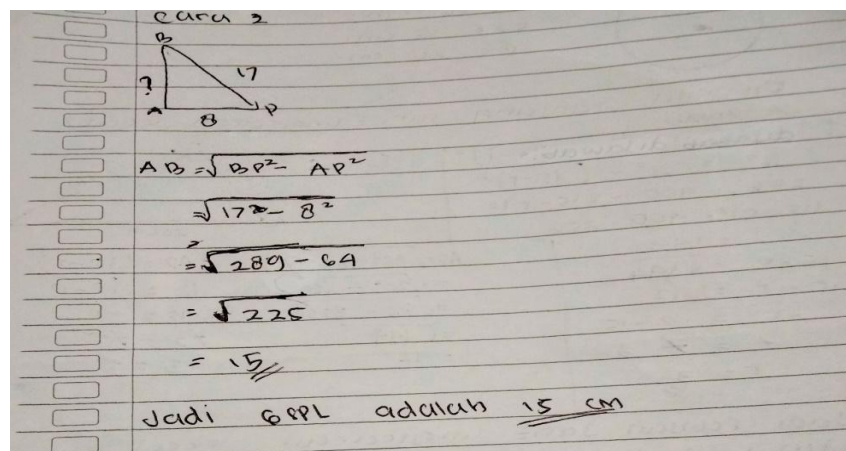 cara 2
B
? 17
A 8 P
AB = √BP² - AP²
= √17² - 8²
= √289 - 64
= √225
= 15
Jadi GSPL adalah 15 cm